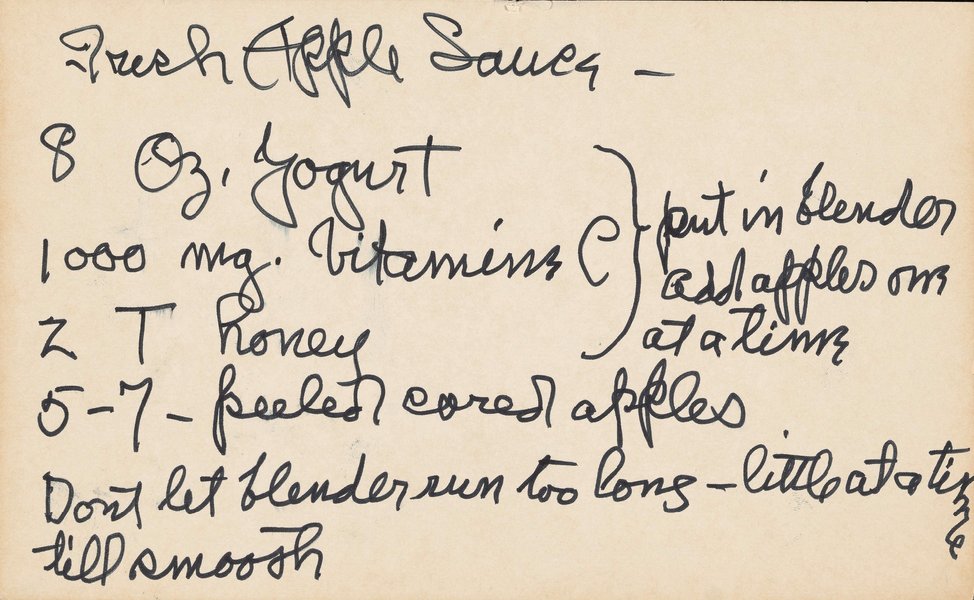 Fresh Apple Sauce -
8 Oz. Yogurt
1000 mg. Vitamine C
2 T honey
} put in blender
add apples one
at a time
5-7 - peeled cored apples
Dont let blender run too long - little at a time
till smoosh